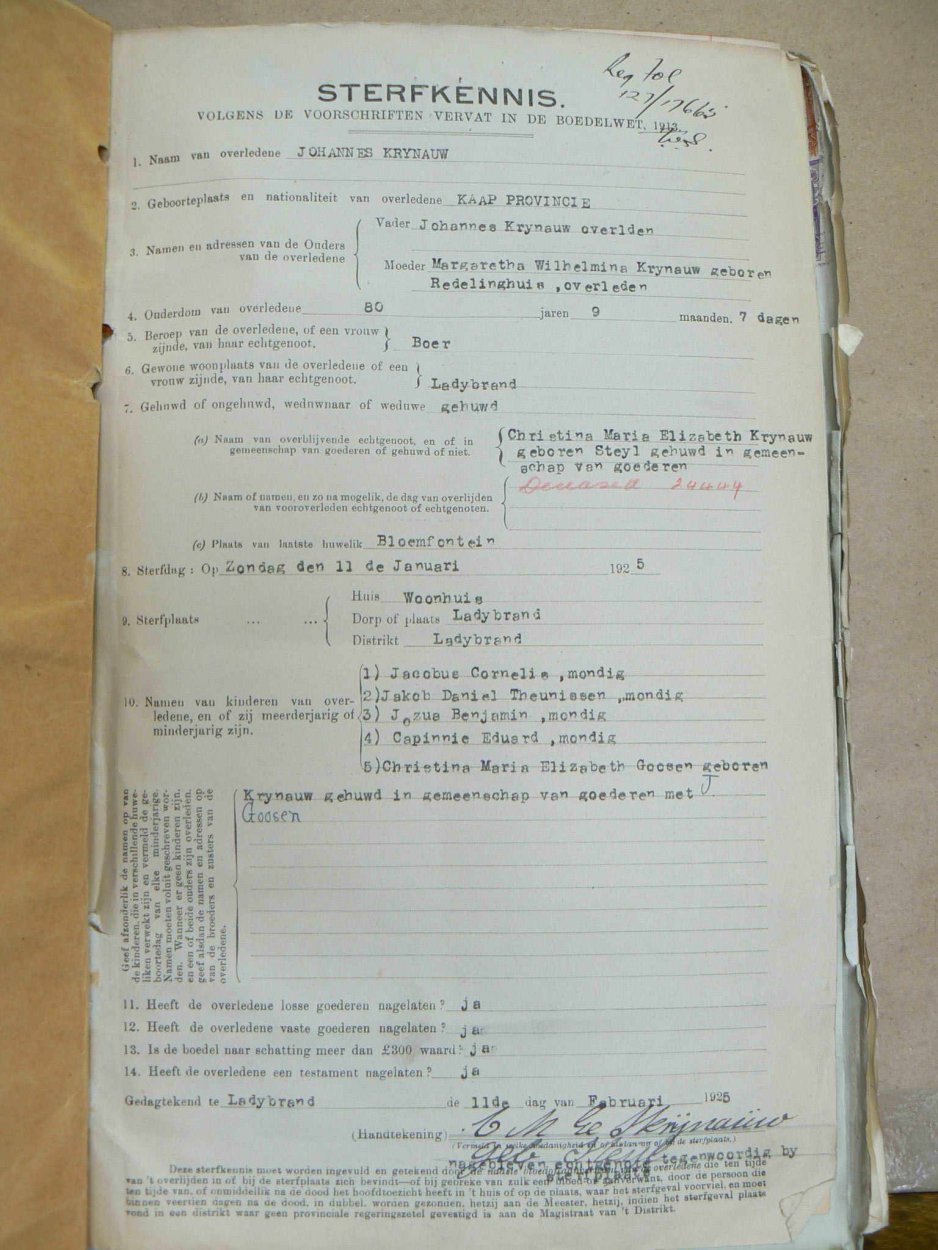 STERFKENNIS.
127/17663
VOLGENS DE VOORSCHRIFTEN VERVAT IN DE BOEDELWET, 1913.
1. Naam van overledene JOHANNES KRYNAUW
2. Geboorteplaats en nationaliteit van overledene KAAP PROVINCIE
3. Namen en adressen van de Ouders van de overledene
Vader Johannes Krynauw overlden
Moeder Margaretha Wilhelmina Krynauw geboren
Redelinghuis ,overleden
4. Onderdom van overledene 80 jaren 9 maanden. 7 dagen
5. Beroep van de overledene, of een vrouw
zijnde, van haar echtgenoot. Boer
6. Gewone woonplaats van de overledene of een
vrouw zijnde, van haar echtgenoot. Ladybrand
7. Gehuwd of ongehuwd, weduwnaar of weduwe gehuwd
(a) Naam van overblijvende echtgenoot, en of in
gemeenschap van goederen of gehuwd of niet.
Christina Maria Elizabeth Krynauw
geboren Steyl gehuwd in gemeen-
schap van goederen
Deceased 24444
(b) Naam of namen, en zo na mogelik, de dag van overlijden
van vooroverleden echtgenoot of echtgenoten.
(c) Plaats van laatste huwelik Bloemfontein
8. Sterfdag : Op Zondag den 11 de Januari 1925
9. Sterfplaats ... ...
Huis Woonhuis
Dorp of plaats Ladybrand
Distrikt Ladybrand
10. Namen van kinderen van over-
ledene, en of zij meerderjarig of
minderjarig zijn.
1) Jacobus Cornelis ,mondig
2)Jakob Daniel Theunissen ,mondig
3) Jozua Benjamin ,mondig
4) Capinnie Eduard ,mondig
5)Christina Maria Elizabeth Goosen geboren
Krynauw gehuwd in gemeenschap van goederen met J
Goosen
Geef afzonderlik de namen op van
de kinderen, die in verschillende huwe-
liken verwekt zijn en vermeld de ge-
boortedag van elke minderjarige.
Namen moeten voluit geschreven wor-
den. Wanneer er geen kinderen zijn,
en een of beide ouders zijn overleden,
geef alsdan de namen en adressen op
van de broeders en zusters van de
overledene.
11. Heeft de overledene losse goederen nagelaten ? ja
12. Heeft de overledene vaste goederen nagelaten ? ja
13. Is de boedel naar schatting meer dan £300 waard? ja
14. Heeft de overledene een testament nagelaten ? ja
Gedagtekend te Ladybrand de 11de dag van Februari 1925
(Handtekening) C M E Krijnauw
nagebleven echtgenote tegenwoordig by
Deze sterfkennis moet worden ingevuld en getekend door de naaste bloed of aanverwant, overledene die ten tijde
van 't overlijden in of bij de sterfplaats zich bevindt—of bij gebreke van zulk een bloed of aanverwant, door de persoon die
ten tijde van, of onmiddellik na de dood het hoofdtoezicht heeft in 't huis of op de plaats, waar het sterfgeval voorviel, en moet
binnen veertien dagen na de dood, in dubbel, worden gezonden, hetzij aan de Meester, hetzij, indien het sterfgeval plaats
vond in een distrikt waar geen provinciale regeringszetel gevestigd is aan de Magistraat van 't Distrikt.